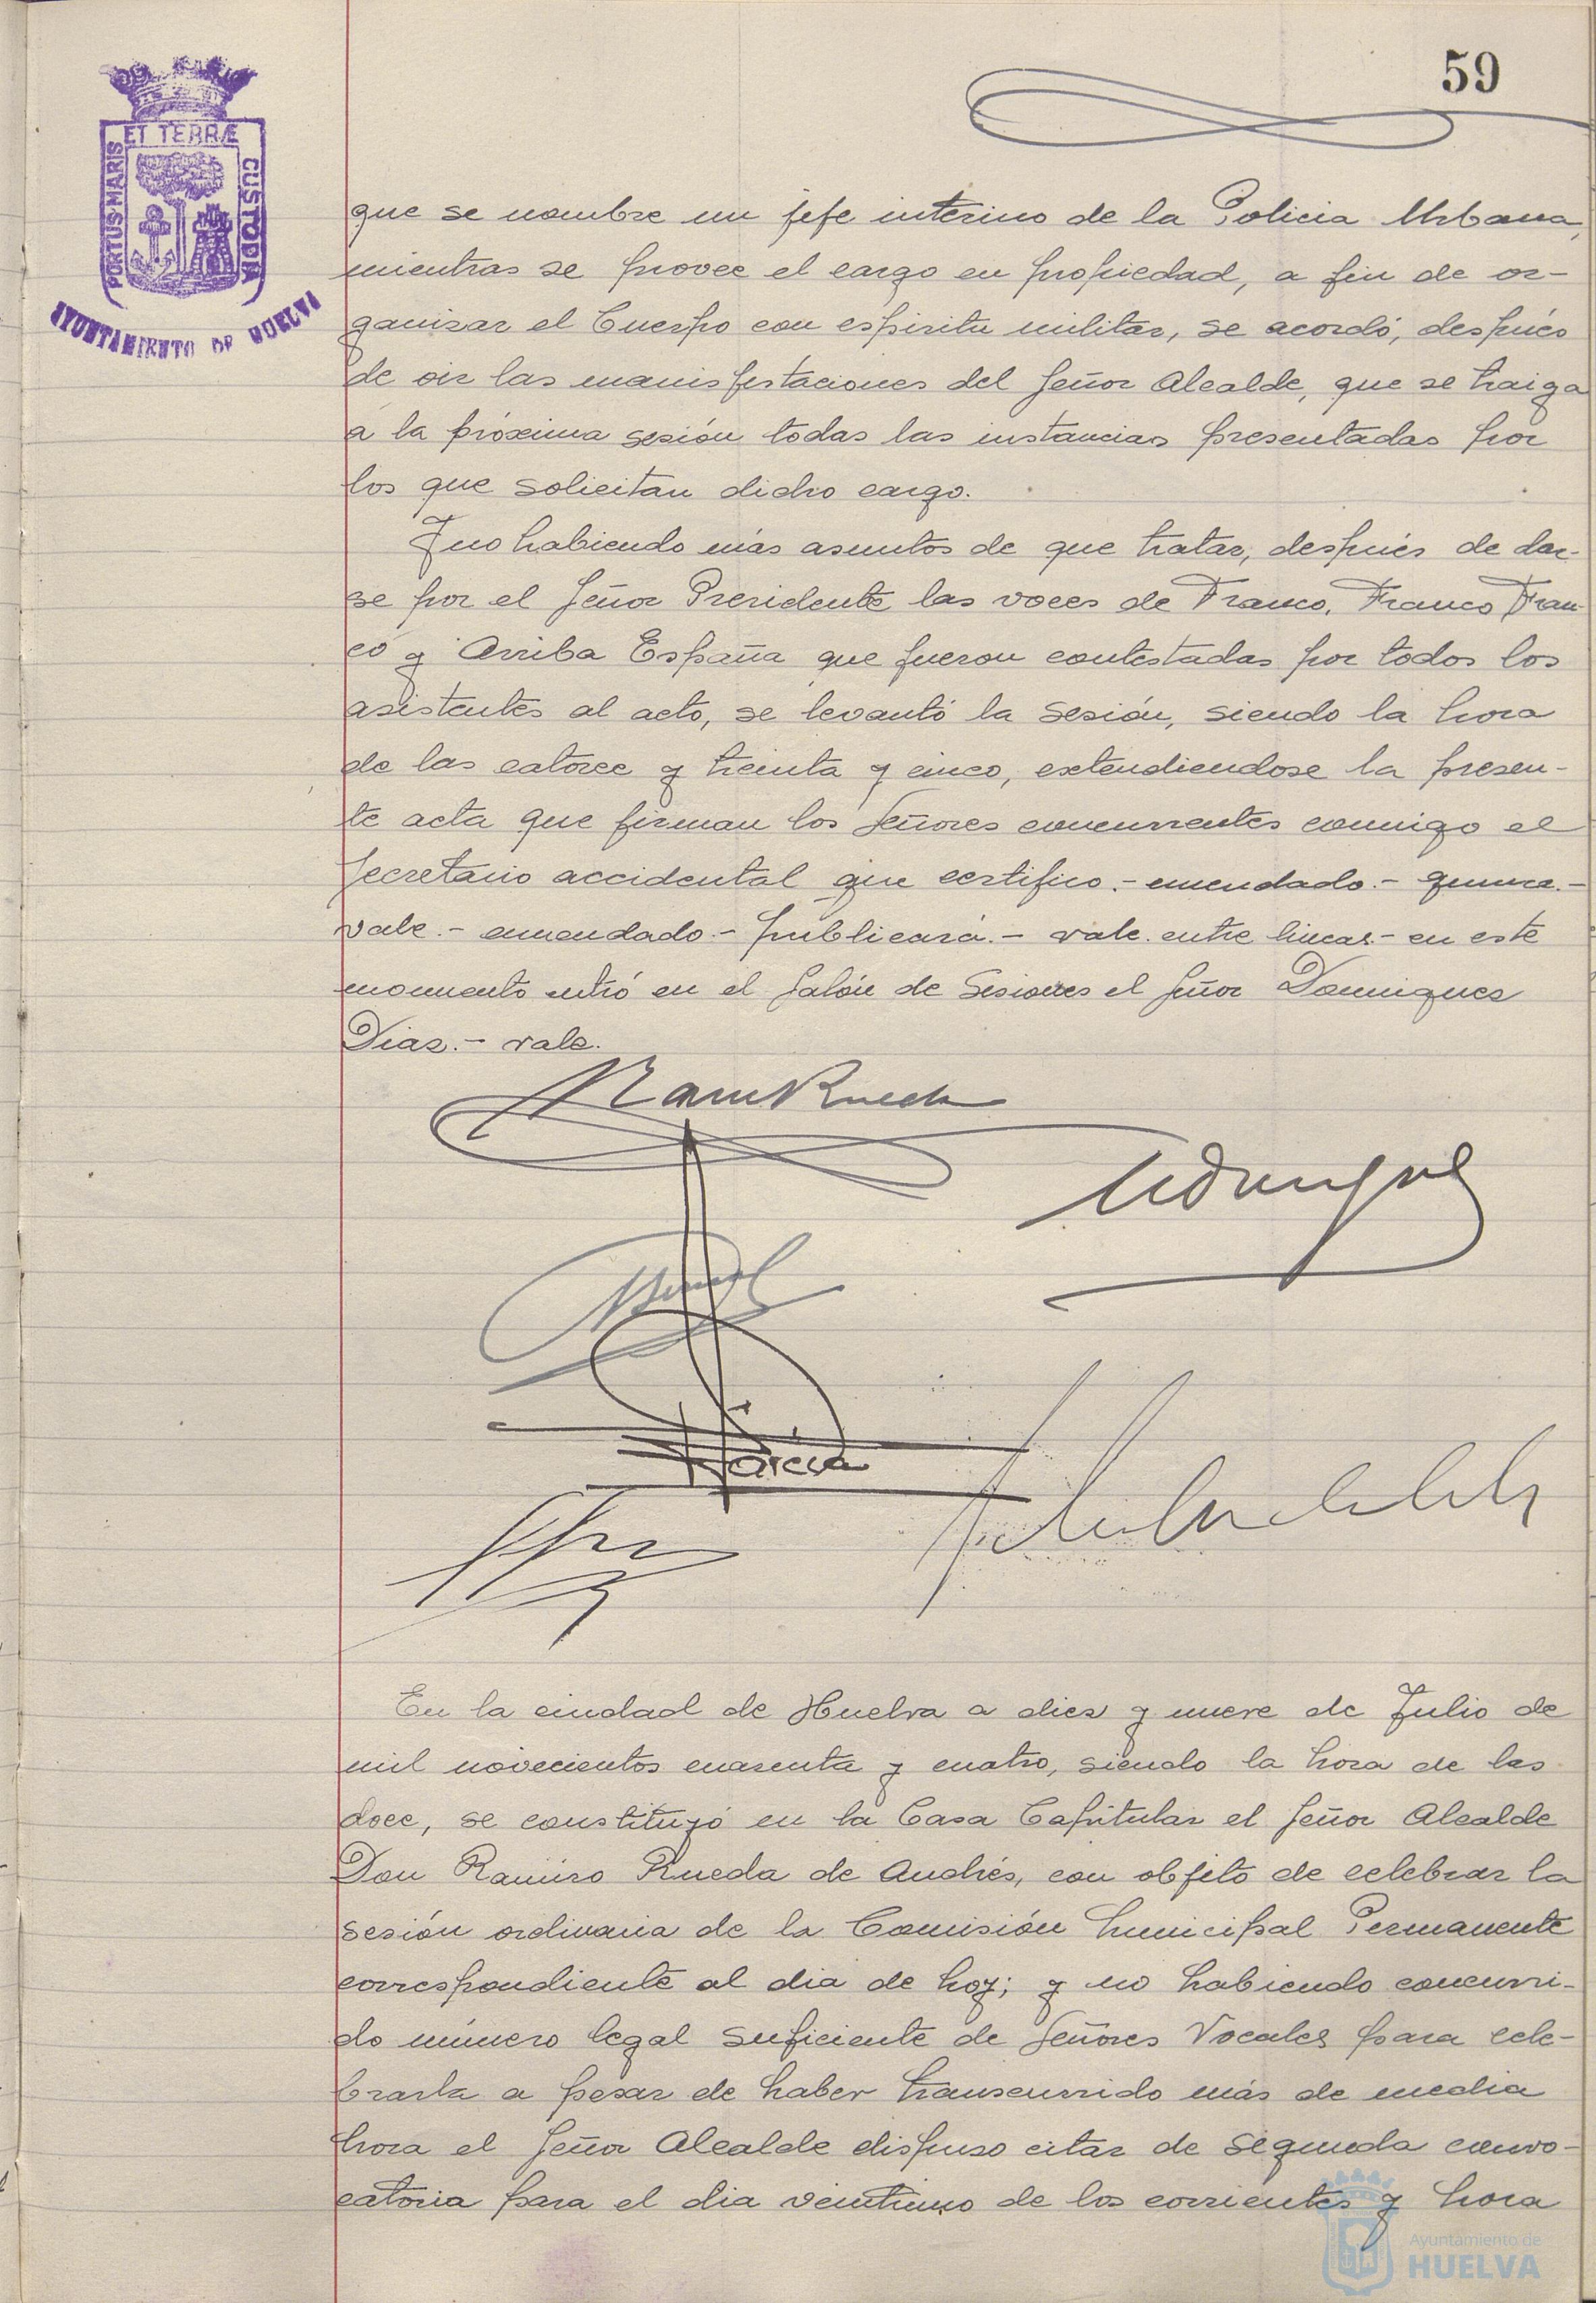 59
PORTUS MARIS
ET TERRÆ
CUSTODIA
AYUNTAMIENTO DE HUELVA
que se nombre un jefe interino de la Policia Urbana,
mientras se provee el cargo en propiedad, a fin de or-
ganizar el Cuerpo con espiritu militar, se acordó, después
de oir las manisfestaciones del Señor Alcalde, que se traiga
a la próxima sesión todas las instancias presentadas por
los que solicitan dicho cargo.
Y no habiendo más asuntos de que tratar, después de dar-
se por el Señor Presidente las voces de Franco, Franco Fran-
co y Arriba España que fueron contestadas por todos los
asistentes al acto, se levantó la sesión, siendo la hora
de las catorce y treinta y cinco, extendiendose la presen-
te acta que firman los Señores concurrentes conmigo el
Secretario accidental que certifico.- enmendado.-
vale.- enmendado.- publicará.- vale. entre lineas.- en este
momento entró en el Salón de Sesiones el Señor Dominguez
Diaz.- vale.
Ram Rueda
García
En la ciudad de Huelva a diez y nueve de Julio de
mil novecientos cuarenta y cuatro, siendo la hora de las
doce, se constituyó en la Casa Capitular el Señor Alcalde
Don Ramiro Rueda de Andrés, con objeto de celebrar la
sesión ordinaria de la Comisión Municipal Permanente
correspondiente al dia de hoy; y no habiendo concurri-
do número legal suficiente de Señores Vocales para cele-
brarla a pesar de haber transcurrido más de media
hora el Señor Alcalde dispuso citar de segunda convo-
catoria para el dia veintiuno de los corrientes y hora
Ayuntamiento de
HUELVA